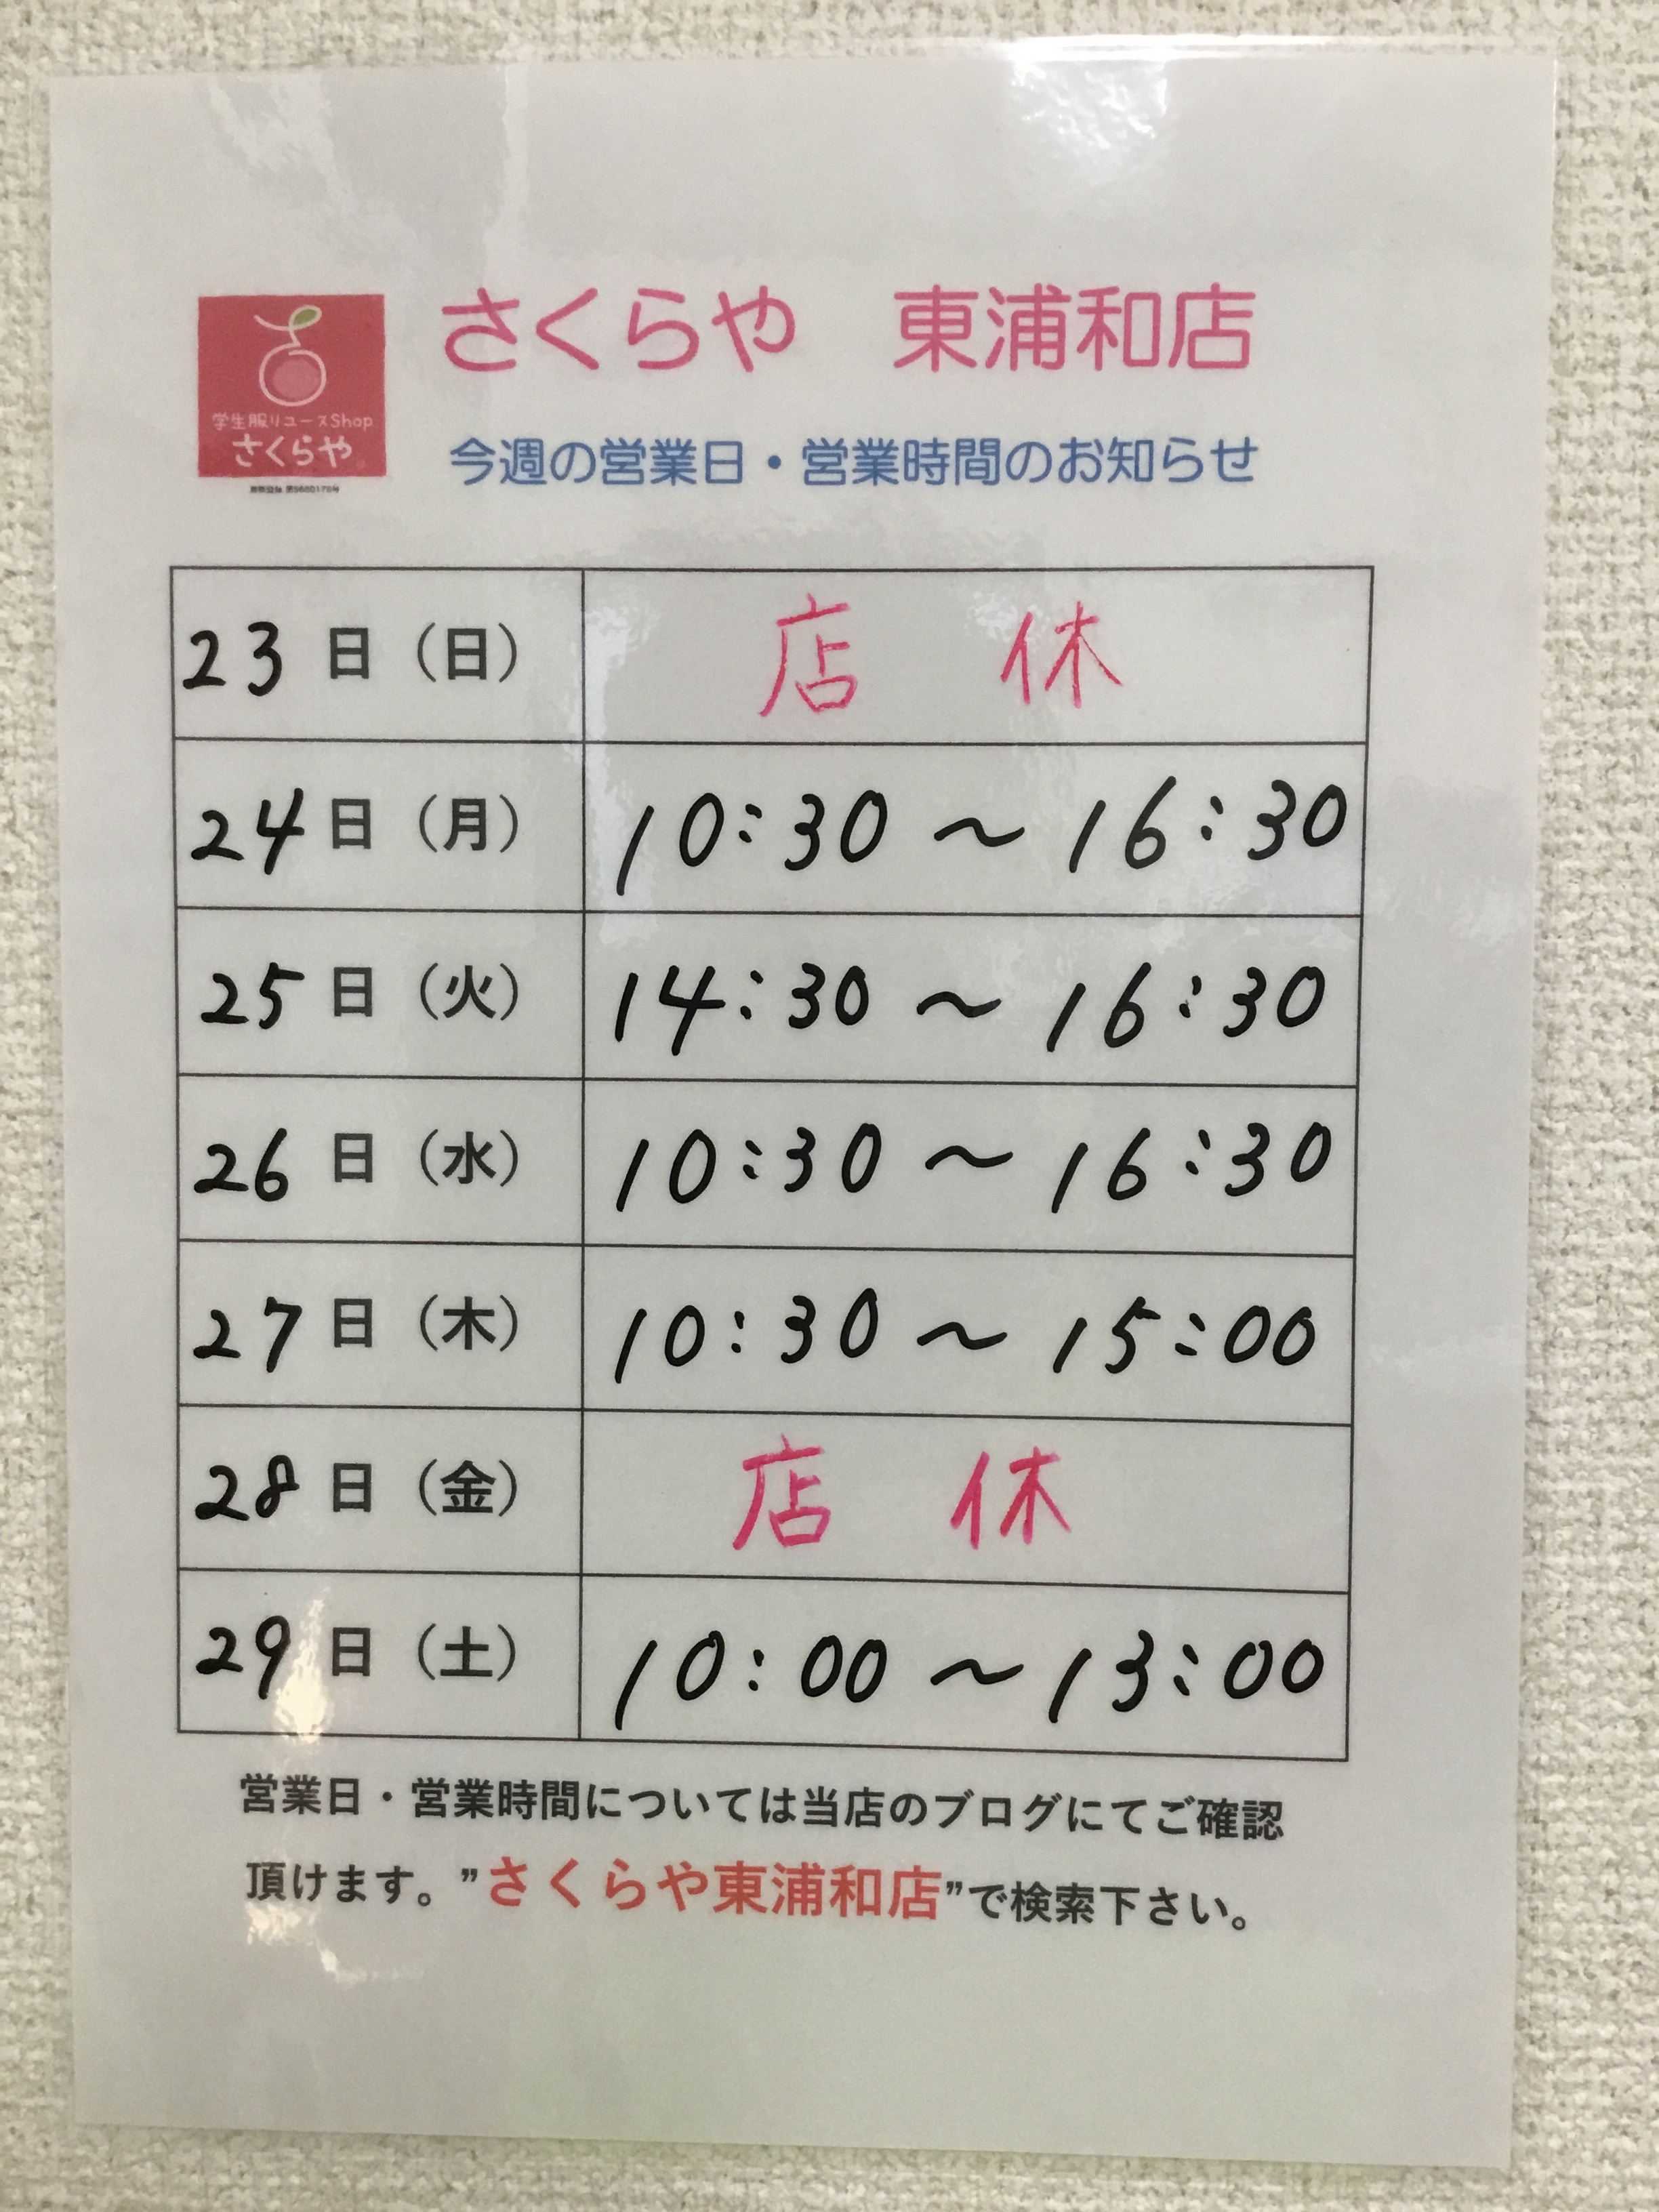 さくらや 東浦和店
学生服リユースShop
さくらや
今週の営業日・営業時間のお知らせ
23日（日） 店休
24日（月） 10:30～16:30
25日（火） 14:30～16:30
26日（水） 10:30～16:30
27日（木） 10:30～15:00
28日（金） 店休
29日（土） 10:00～13:00
営業日・営業時間については当店のブログにてご確認
頂けます。”さくらや東浦和店”で検索下さい。